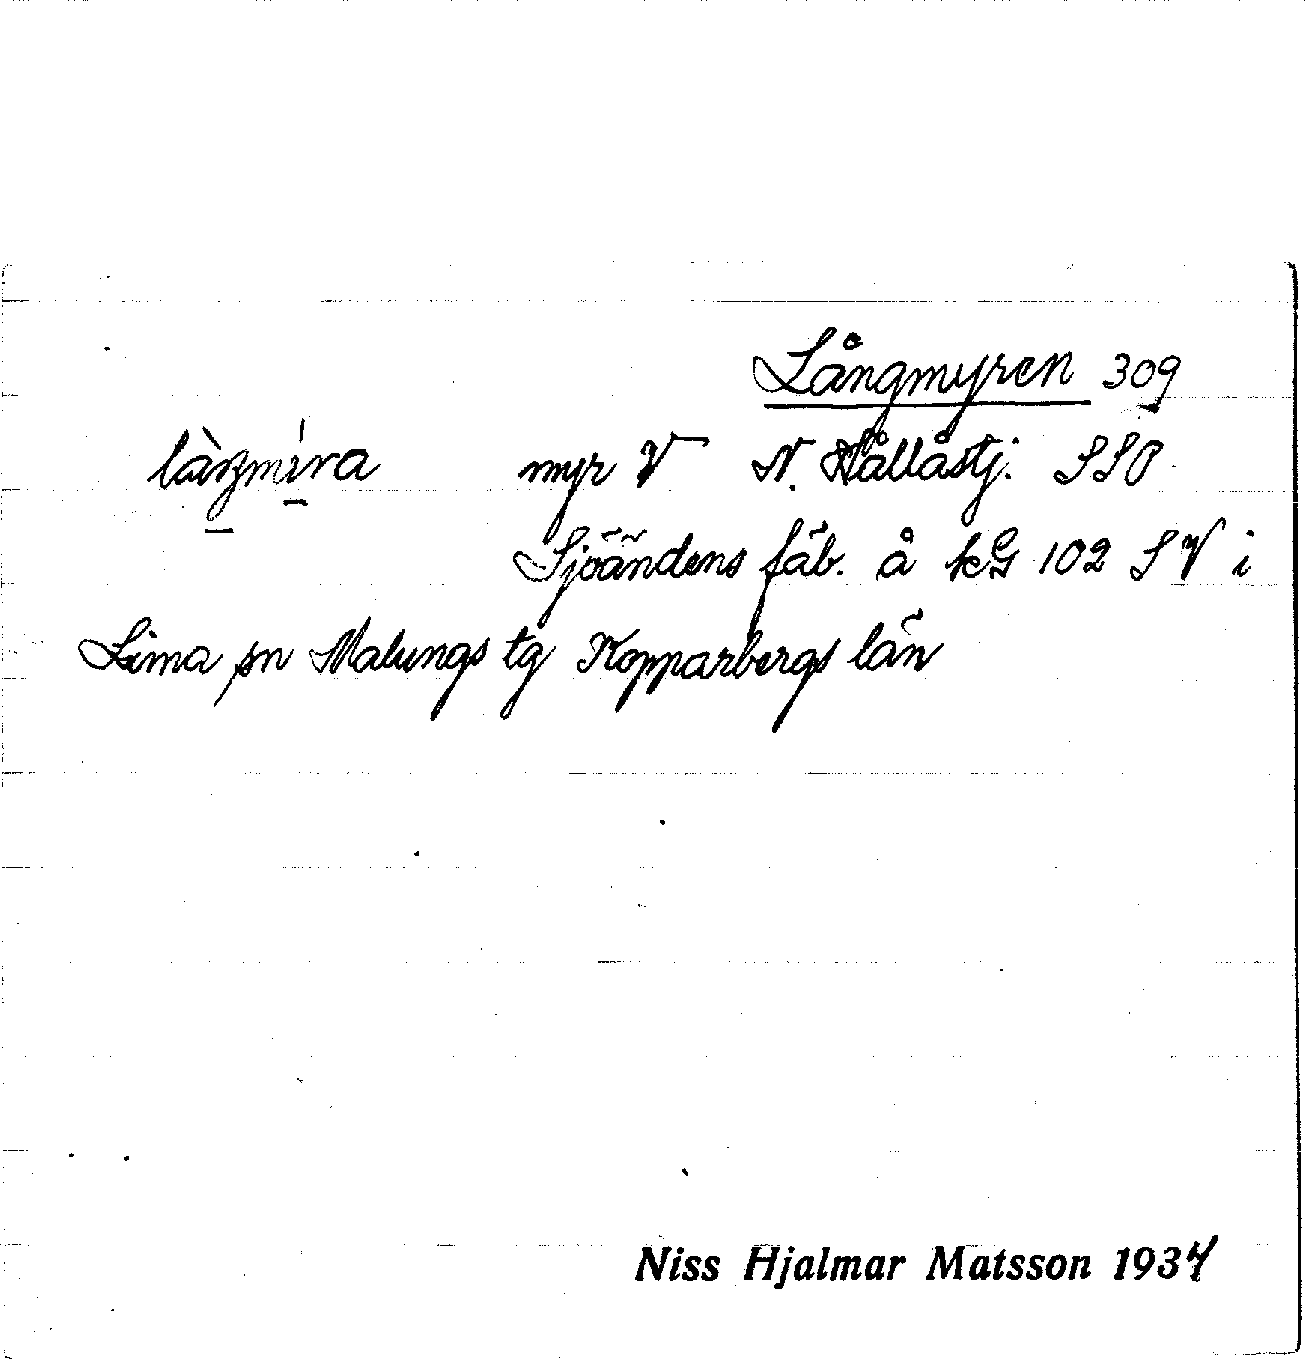 Långmyren 309
myr V N. Hållåstj. SSO
Sjöändens fäb. å kG 102 SV i
Lima sn Malungs tg Kopparbergs län
Niss Hjalmar Matsson 1937